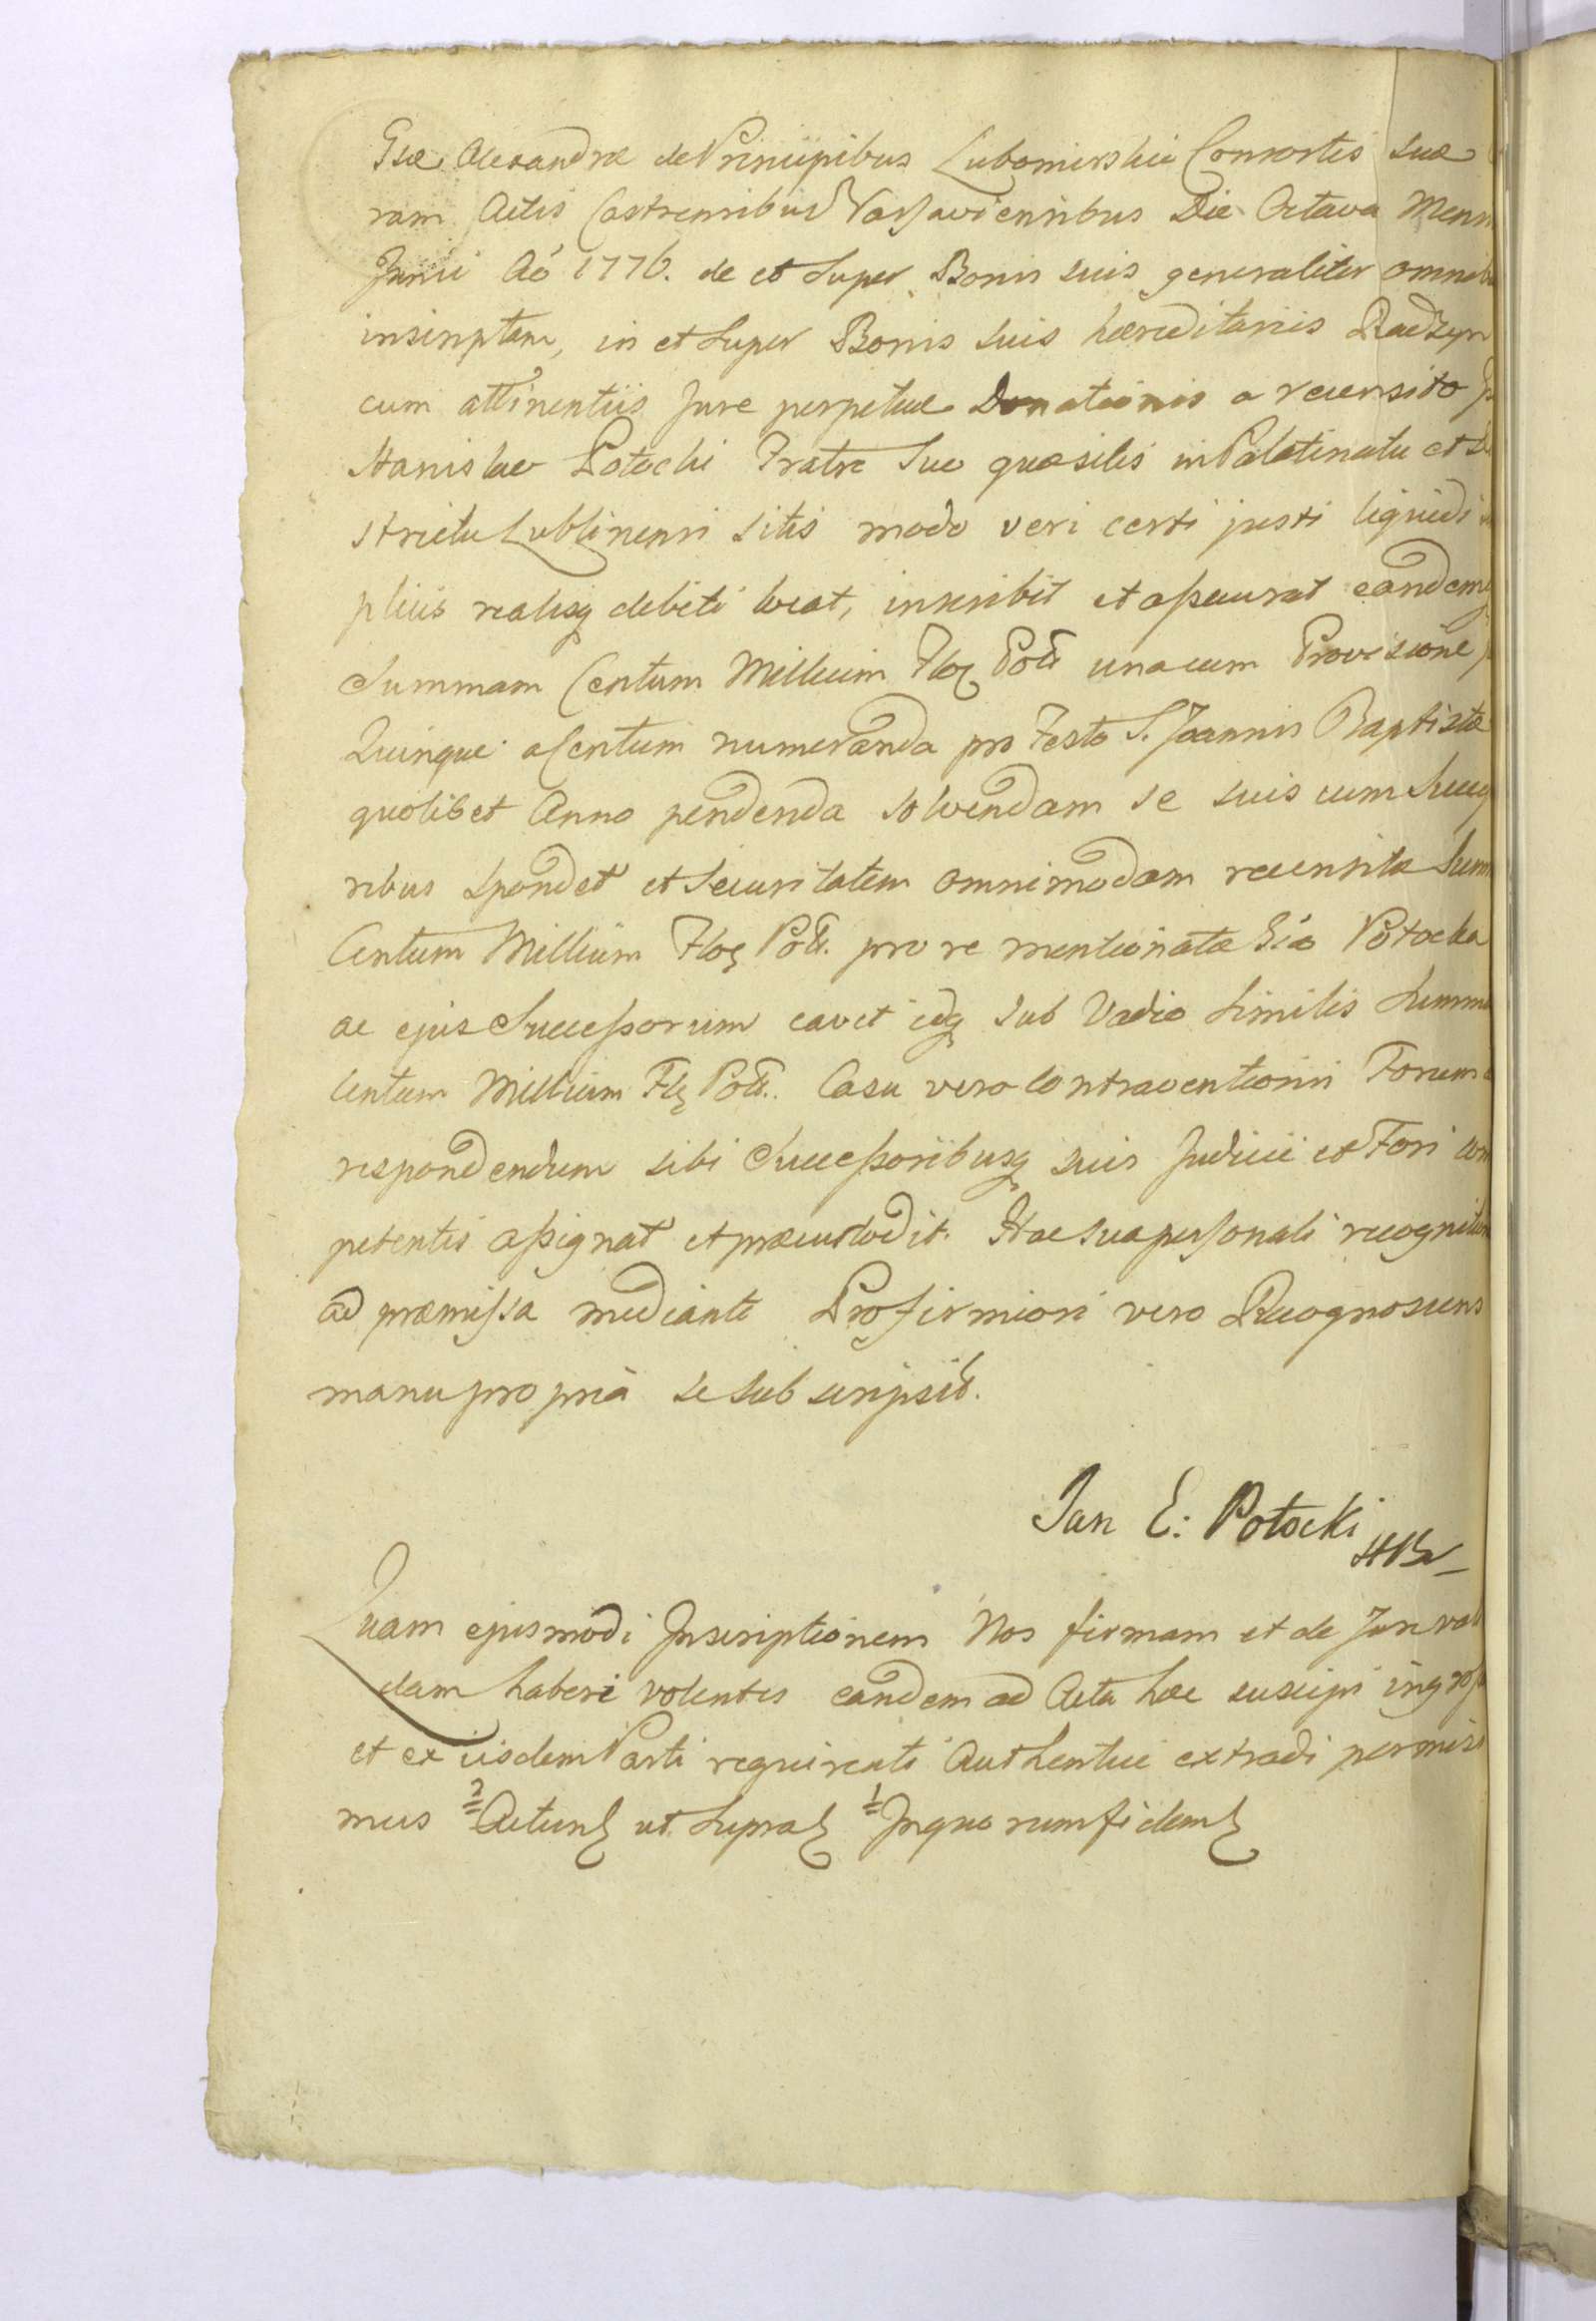 Gsæ Alexandræ de Principibus Lubomirskie Consortis suæ
ram Actis Castrensibus Varsaviensibus Die Octava Mens
Junii Aő 1776. de et super Bonis suis generaliter omnib
inscriptam, in et super Bonis suis hæreditariis Radzyn
cum attinentiis Jure perpetuæ Donationis a recensito
Stanislao Potocki Fratre Suo quæsitis in Palatinatu et Di
strictu Lublinensi sitis modo veri certi justi liquidi
pliis realisq debiti locat, inscribit et assecurat eandemq
Summam Centum Millium Flor Poll unacum Provisione
Quinque a Centum numeranda pro Festo S. Joannis Baptistæ
quolibet Anno pendenda solvendam se suis cum Succes
ribus spondet et Securitatem omnimodam recensitæ Sum
Centum Millium Flor Poll. pro re mentionata Gsa Potocka
ac ejus Successorum cavet idq sub Vadio similis Summæ
Centum Millium Flr Poll. Casu vero Contraventionis Forum
respondendum sibi Successoribusq suis Judicii et Fori com
petentis assignat et præcustodit. Hac sua personali recognition
ad præmissa mediante Pro firmiori vero Recognoscens
manu propria se subscripsit.
Jan E: Potocki
Quam ejusmodi Inscriptionem Nos firmam et de Jure vali
dam haberi volentes eandem ad Acta hæc suscipi ingross
et ex iisdem Parti requirenti Authentice extradi permisi
mus 2 Actum ut supra 1 In quorum fidem